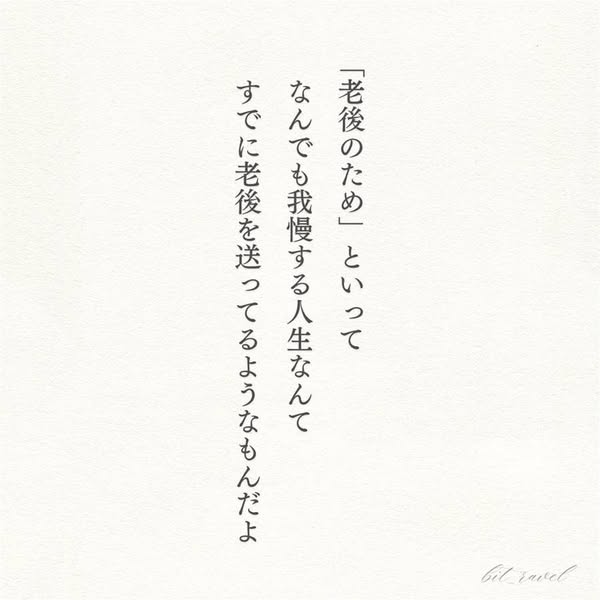 「老後のため」といって
なんでも我慢する人生なんて
すでに老後を送ってるようなもんだよ
bit_ravel